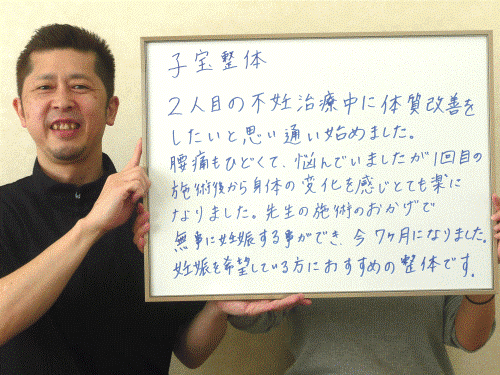 子宝整体
2人目の不妊治療中に体質改善を
したいと思い通い始めました。
腰痛もひどくて、悩んでいましたが1回目の
施術後から身体の変化を感じとても楽に
なりました。先生の施術のおかげで
無事に妊娠する事ができ、今7ヶ月になりました。
妊娠を希望している方におすすめの整体です。